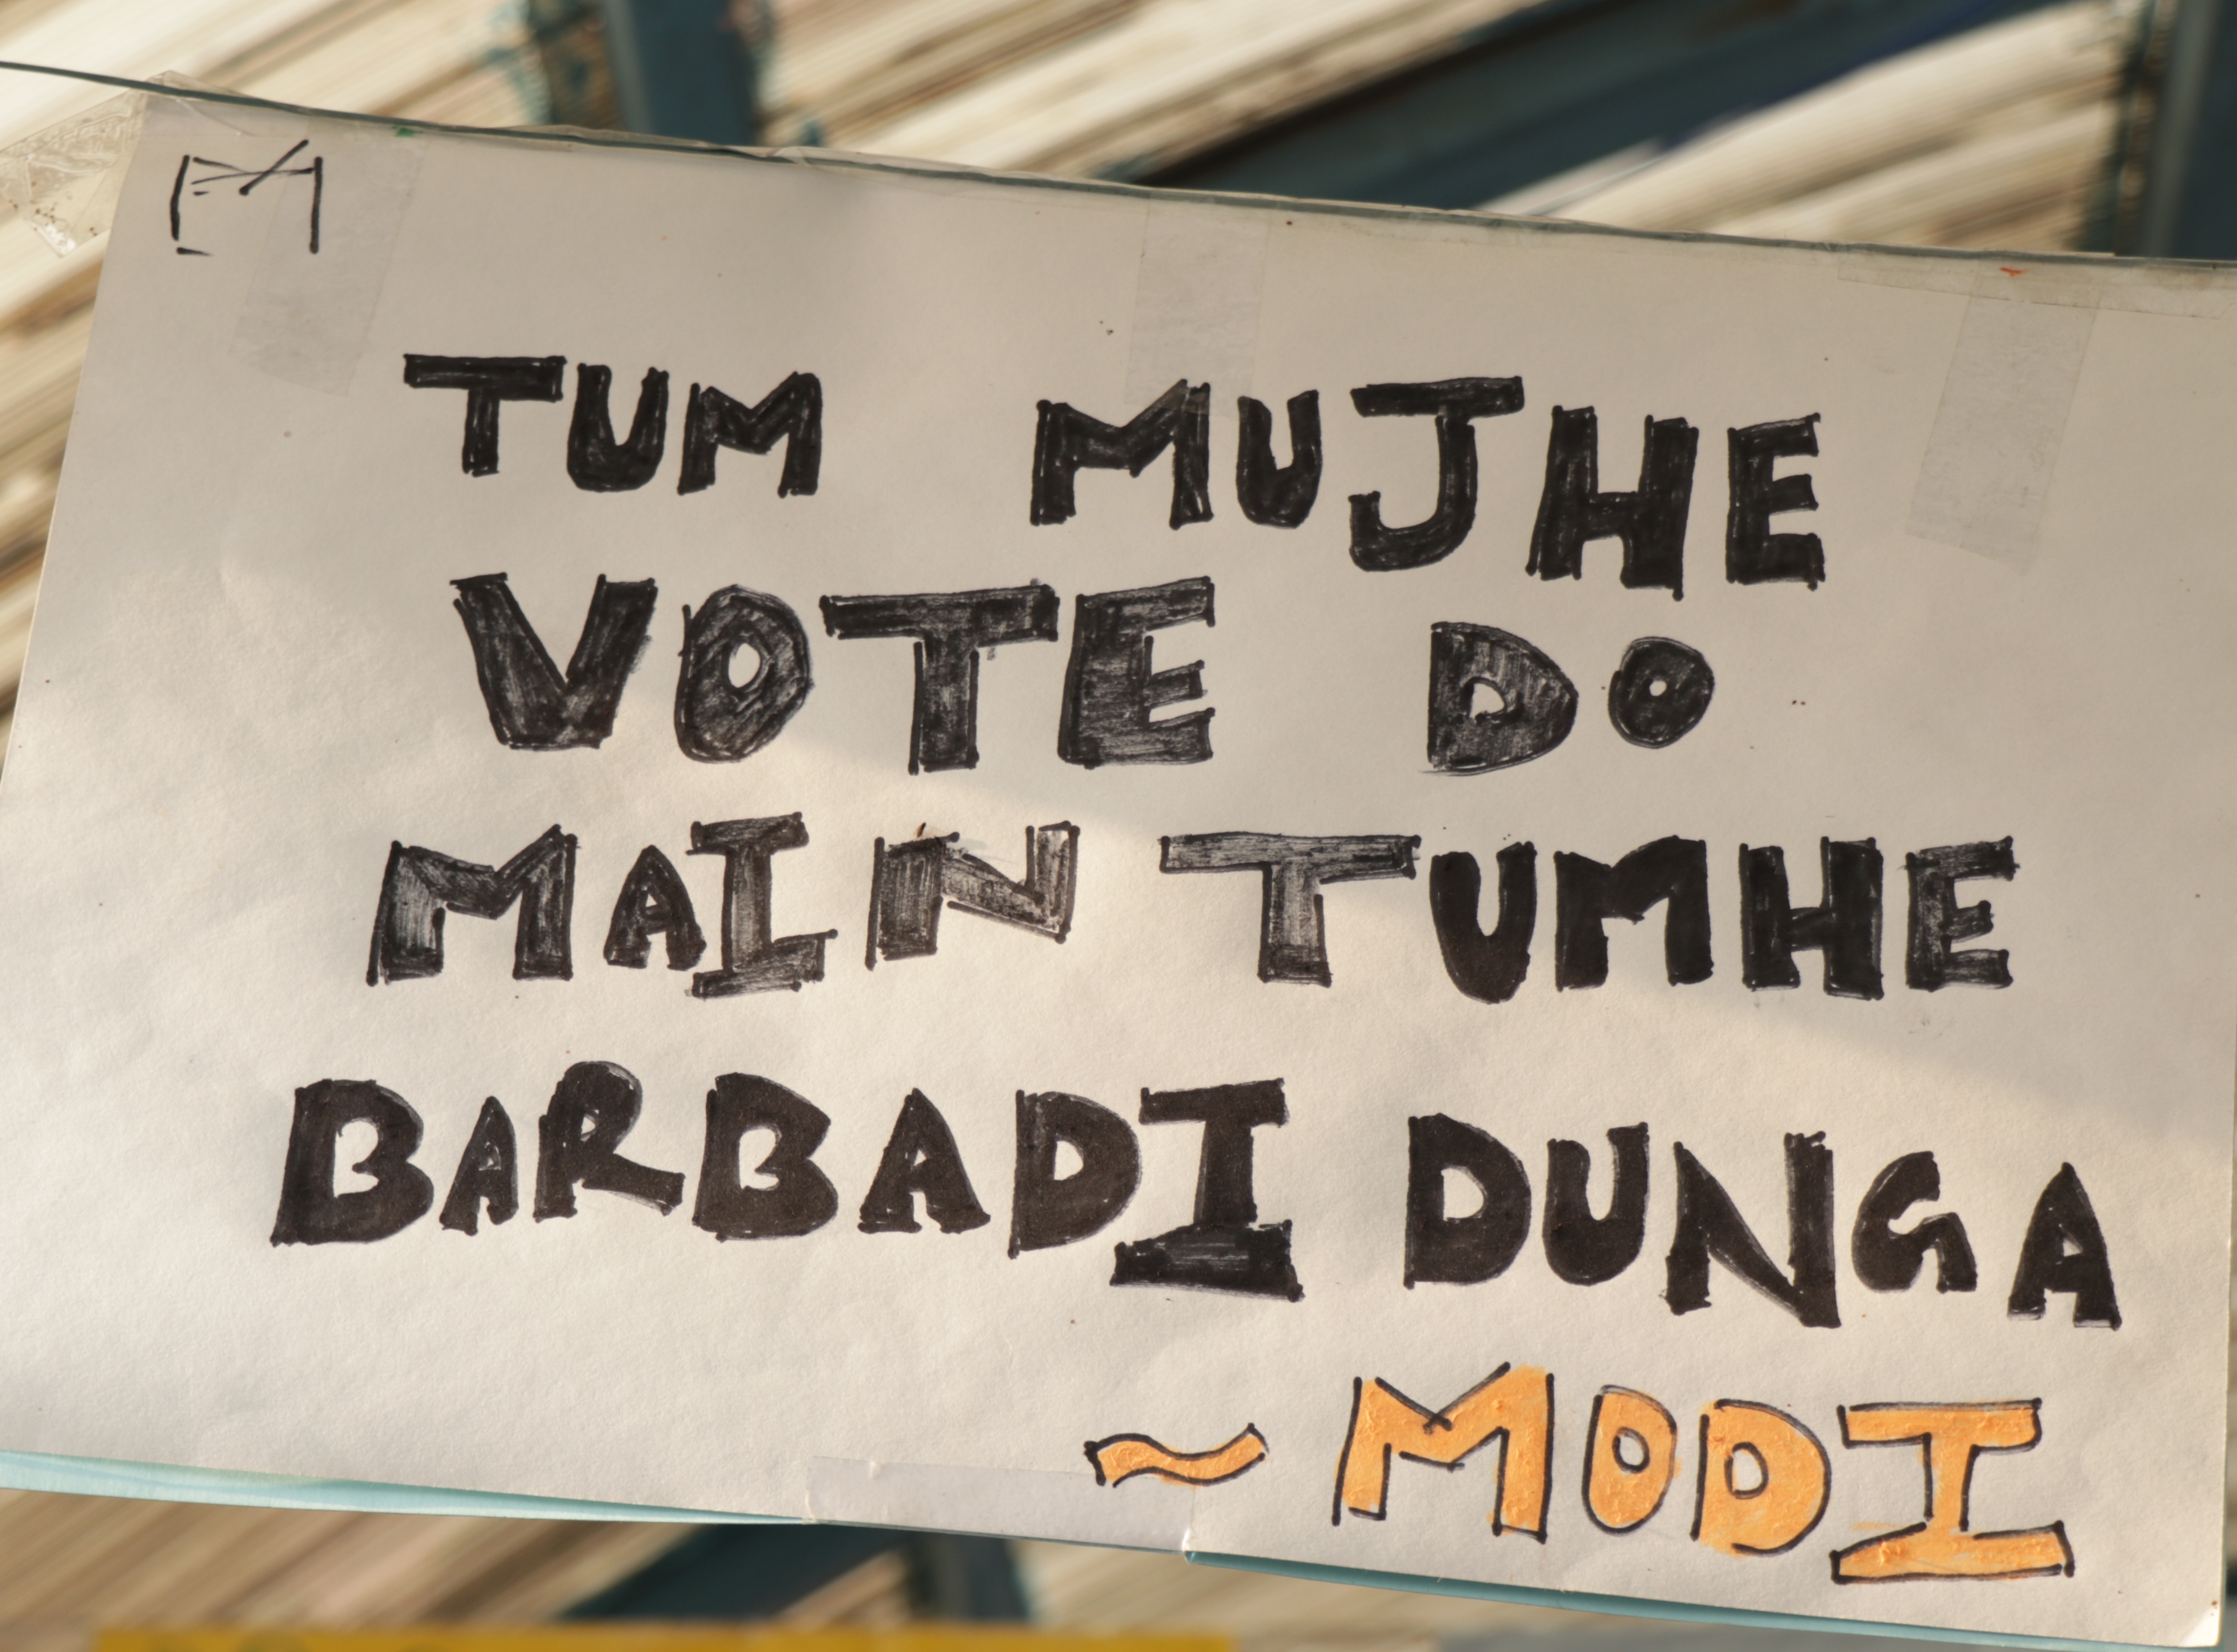 TUM MUJHE
VOTE DO
MAIN TUMHE
BARBADI DUNGA
~ MODI